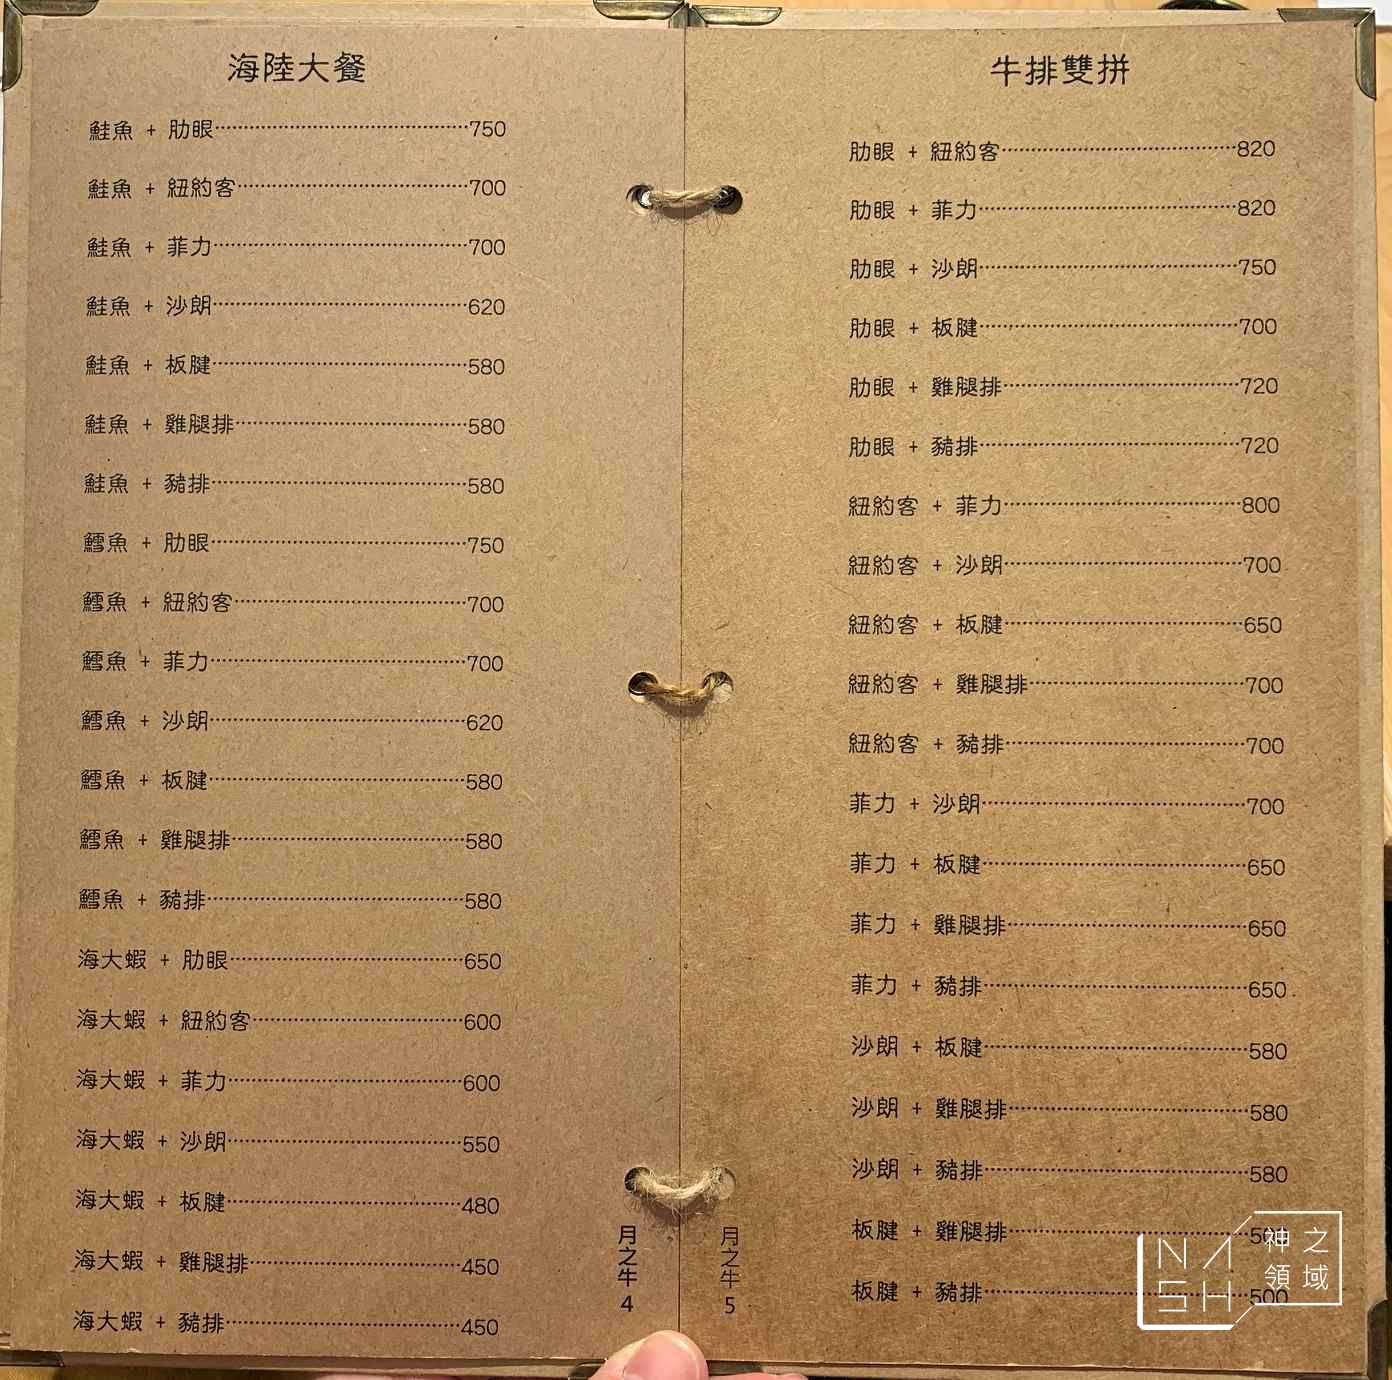 海陸大餐
鮭魚 + 肋眼 750
鮭魚 + 紐約客 700
鮭魚 + 菲力 700
鮭魚 + 沙朗 620
鮭魚 + 板腱 580
鮭魚 + 雞腿排 580
鮭魚 + 豬排 580
鱈魚 + 肋眼 750
鱈魚 + 紐約客 700
鱈魚 + 菲力 700
鱈魚 + 沙朗 620
鱈魚 + 板腱 580
鱈魚 + 雞腿排 580
鱈魚 + 豬排 580
海大蝦 + 肋眼 650
海大蝦 + 紐約客 600
海大蝦 + 菲力 600
海大蝦 + 沙朗 550
海大蝦 + 板腱 480
海大蝦 + 雞腿排 450
海大蝦 + 豬排 450
月之牛 4
牛排雙拼
肋眼 + 紐約客 820
肋眼 + 菲力 820
肋眼 + 沙朗 750
肋眼 + 板腱 700
肋眼 + 雞腿排 720
肋眼 + 豬排 720
紐約客 + 菲力 800
紐約客 + 沙朗 700
紐約客 + 板腱 650
紐約客 + 雞腿排 700
紐約客 + 豬排 700
菲力 + 沙朗 700
菲力 + 板腱 650
菲力 + 雞腿排 650
菲力 + 豬排 650
沙朗 + 板腱 580
沙朗 + 雞腿排 580
沙朗 + 豬排 580
板腱 + 雞腿排
板腱 + 豬排 500
月之牛 5
NASH
神之
領域